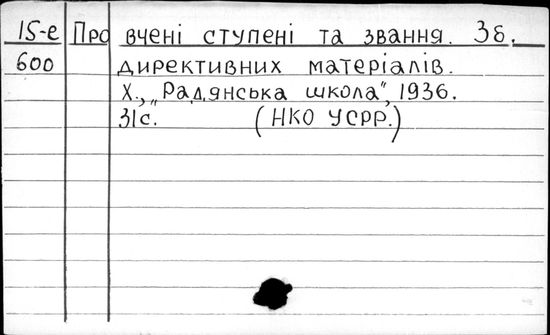 15-е Про вчені ступені та звання. Зб.
600 директивних матеріалів.
Х., „Радянська школа", 1936.
31с. (НКО УСРР.)